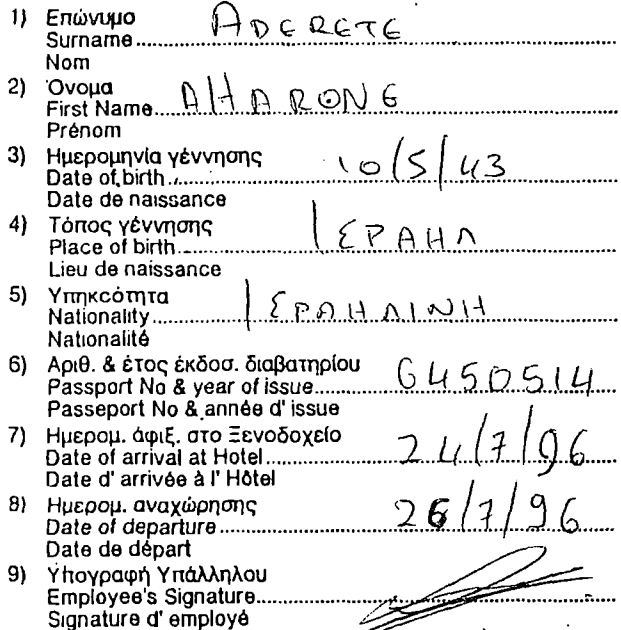 1) Επώνυμο
Surname ADERETE
Nom
2) Όνομα
First Name AHARONE
Prénom
3) Ημερομηνία γέννησης
Date of birth 10/5/43
Date de naissance
4) Τόπος γέννησης
Place of birth ΙΣΡΑΗΛ
Lieu de naissance
5) Υπηκοότητα
Nationality ΙΣΡΑΗΛΙΝΗ
Nationalité
6) Αριθ. & έτος έκδοσ. διαβατηρίου
Passport No & year of issue 6450514
Passeport No & année d' issue
7) Ημερομ. άφιξ. στο Ξενοδοχείο
Date of arrival at Hotel 24/7/96
Date d' arrivée à l' Hôtel
8) Ημερομ. αναχώρησης
Date of departure 26/7/96
Date de départ
9) Υπογραφή Υπάλληλου
Employee's Signature
Signature d' employé